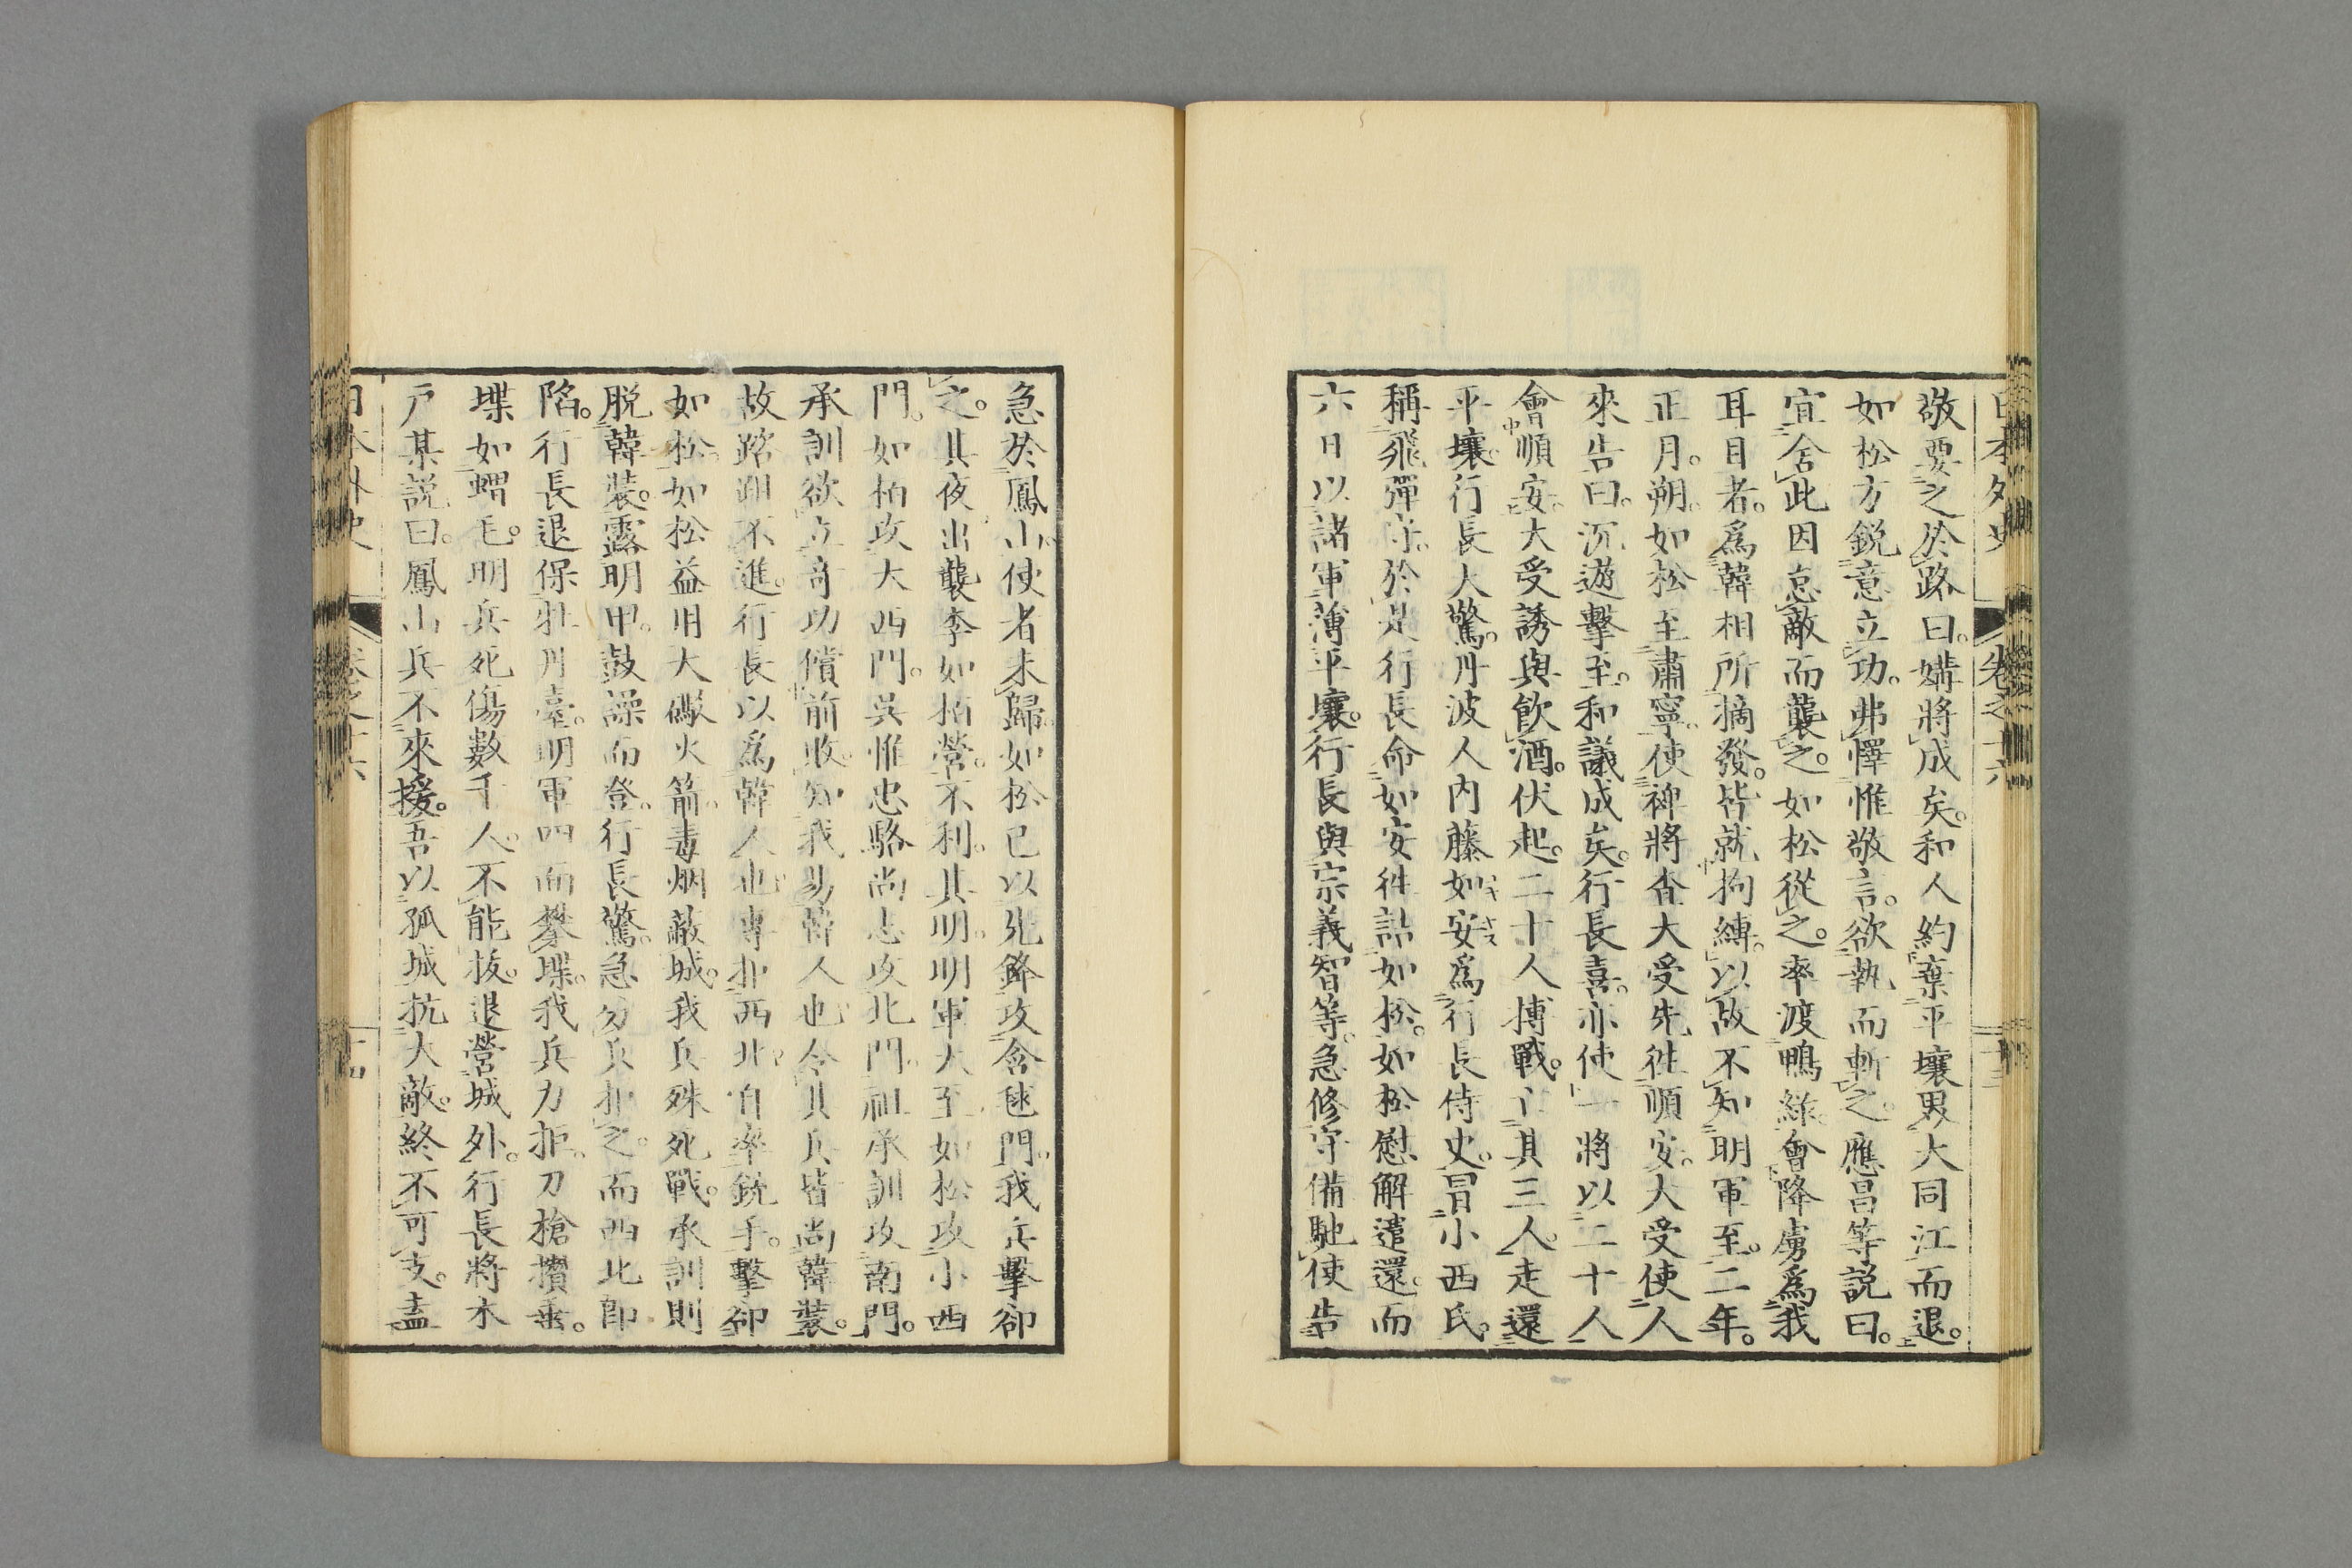 日本外史 卷之十六 十三
敬要之於路曰。媾將成矣。和人約棄平壤畀大同江而退。
如松方鋭意立功。弗懌惟敬言。欲執而斬之。應昌等説曰。
宜舍此因怠敵而襲之。如松從之。率渡鴨綠會降虜爲我
耳目者。爲韓相所摘發。皆就拘縛。以故不知明軍至。二年。
正月。朔。如松至肅寧。使裨將査大受先徃順安。大受使人
來告曰。沉遊擊至。和議成矣。行長喜。亦使一將以二十人
會順安。大受誘與飲酒。伏起。二十人搏戰。亡其三人。走還
平壤。行長大驚。丹波人内藤如安爲行長侍史。冐小西氏。
稱飛彈守。於是行長命如安徃詰如松。如松慰解遣還。而
六日以諸軍薄平壤。行長與宗義智等。急修守備馳使告
急於鳳山。使者未歸。如松已以先鋒攻含毬門。我兵擊卻
之。其夜出襲李如柏營。不利。其明。明軍大至如松攻小西
門。如柏攻大西門。吳惟忠駱尚志攻北門。祖承訓攻南門。
承訓欲立奇功償前敗。知我易韓人也。令其兵皆尚韓裝。
故踏跙不進。行長以爲韓人也。專扞西北。自率銃手。擊卻
如松。如松益用大礮火箭。毒烟蔽城。我兵殊死戰。承訓則
脱韓裝。露明甲。鼓譟而登。行長驚。急分兵扞之。而西北即
陷。行長退保牡丹臺。明軍四面攀堞。我兵力拒。刀槍攢垂。
堞如蝟毛。明兵死傷數千人。不能拔。退營城外。行長將木
戸某説曰。鳳山兵不來援。吾以孤城抗大敵。終不可支。盍
日本外史 卷之十六 十四